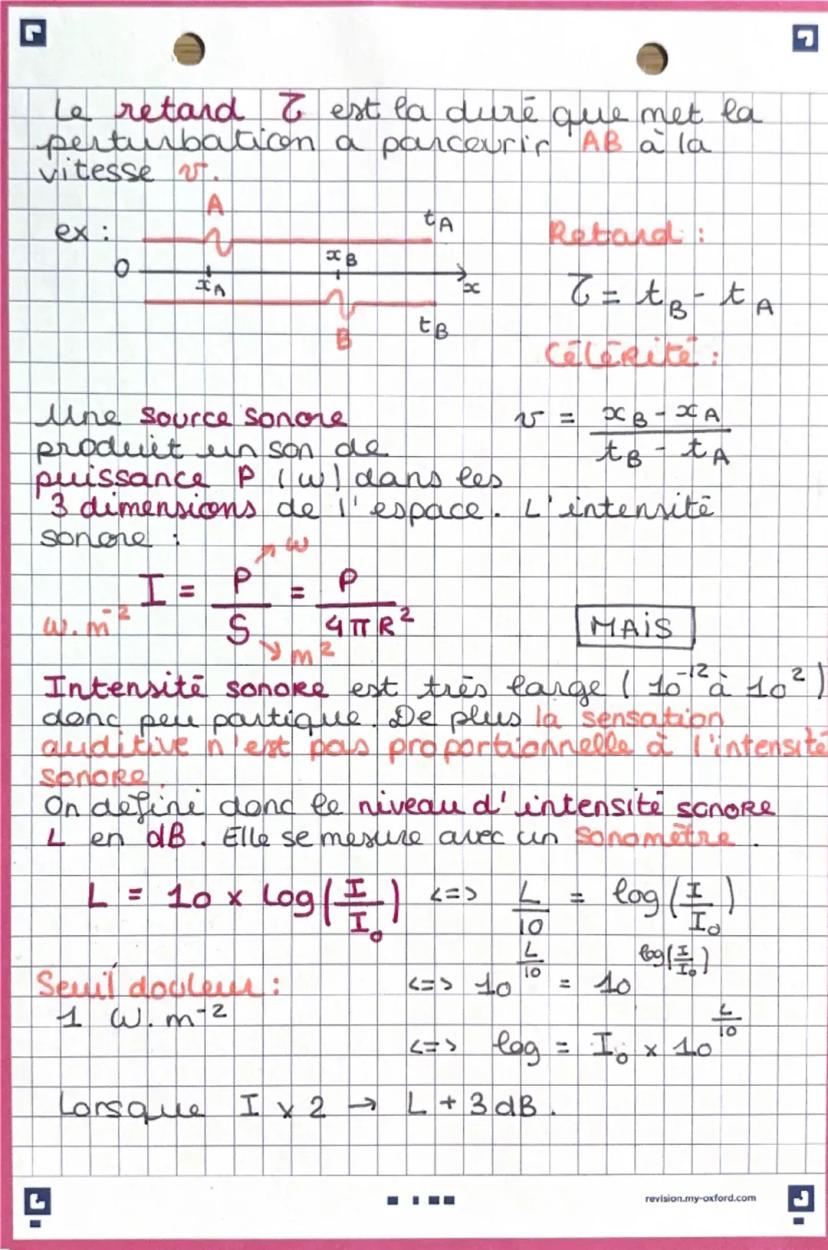 Le retard τ est la duré que met la
perturbation a parcourir AB à la
vitesse v.
A
ex :
t_A
x_B
O
x_A
x
B
t_B
Retard :
τ = t_B - t_A
Célérité :
v = (x_B - x_A) / (t_B - t_A)
Une source sonore
produit un son de
puissance P (W) dans les
3 dimensions de l'espace. L'intensité
sonore :
W
I = P/S = P/(4πR²)
W.m⁻²
m²
MAIS
Intensité sonore est très large (10⁻¹² à 10²)
donc peu partique. De plus la sensation
auditive n'est pas proportionnelle à l'intensité
sonore.
On défini donc le niveau d'intensité sonore
L en dB. Elle se mesure avec un sonomètre.
L = 10 × log(I/I₀) <=> L/10 = log(I/I₀)
Seuil douleur :
<=> 10^(L/10) = 10^(log(I/I₀))
1 W.m⁻²
<=> log = I₀ × 10^(L/10)
Lorsque I × 2 → L + 3 dB.
revision.my-oxford.com